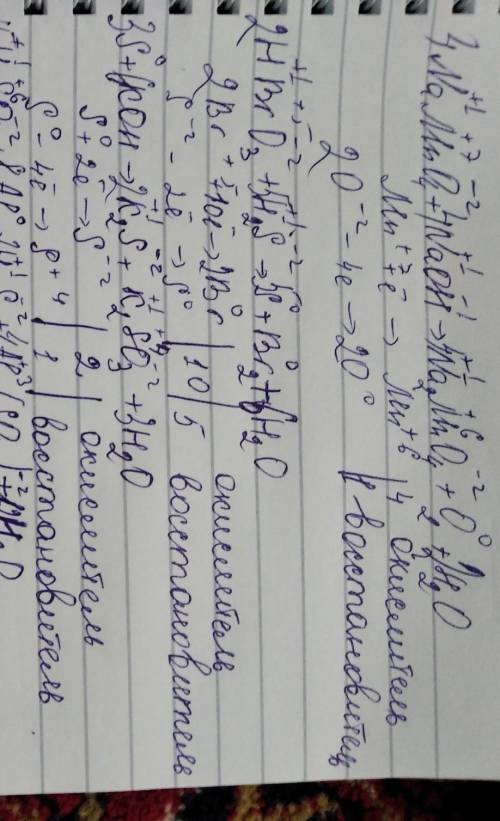 4NaMnO4 + 4NaOH → 4Na2MnO4 + O2 + 2H2O
Mn+7 + e → Mn+6 | 4 окислитель
2O-2 - 4e → 2O0 | 1 восстановитель
2HBrO3 + 5H2S → 5S + Br2 + 6H2O
2Br+5 + 10e → 2Br0 | 10 окислитель
S-2 - 2e → S0 | 5 восстановитель
3S + 6KOH → 2K2S + K2SO3 + 3H2O
S0 + 2e → S-2 | 2 окислитель
S0 - 4e → S+4 | 1 восстановитель